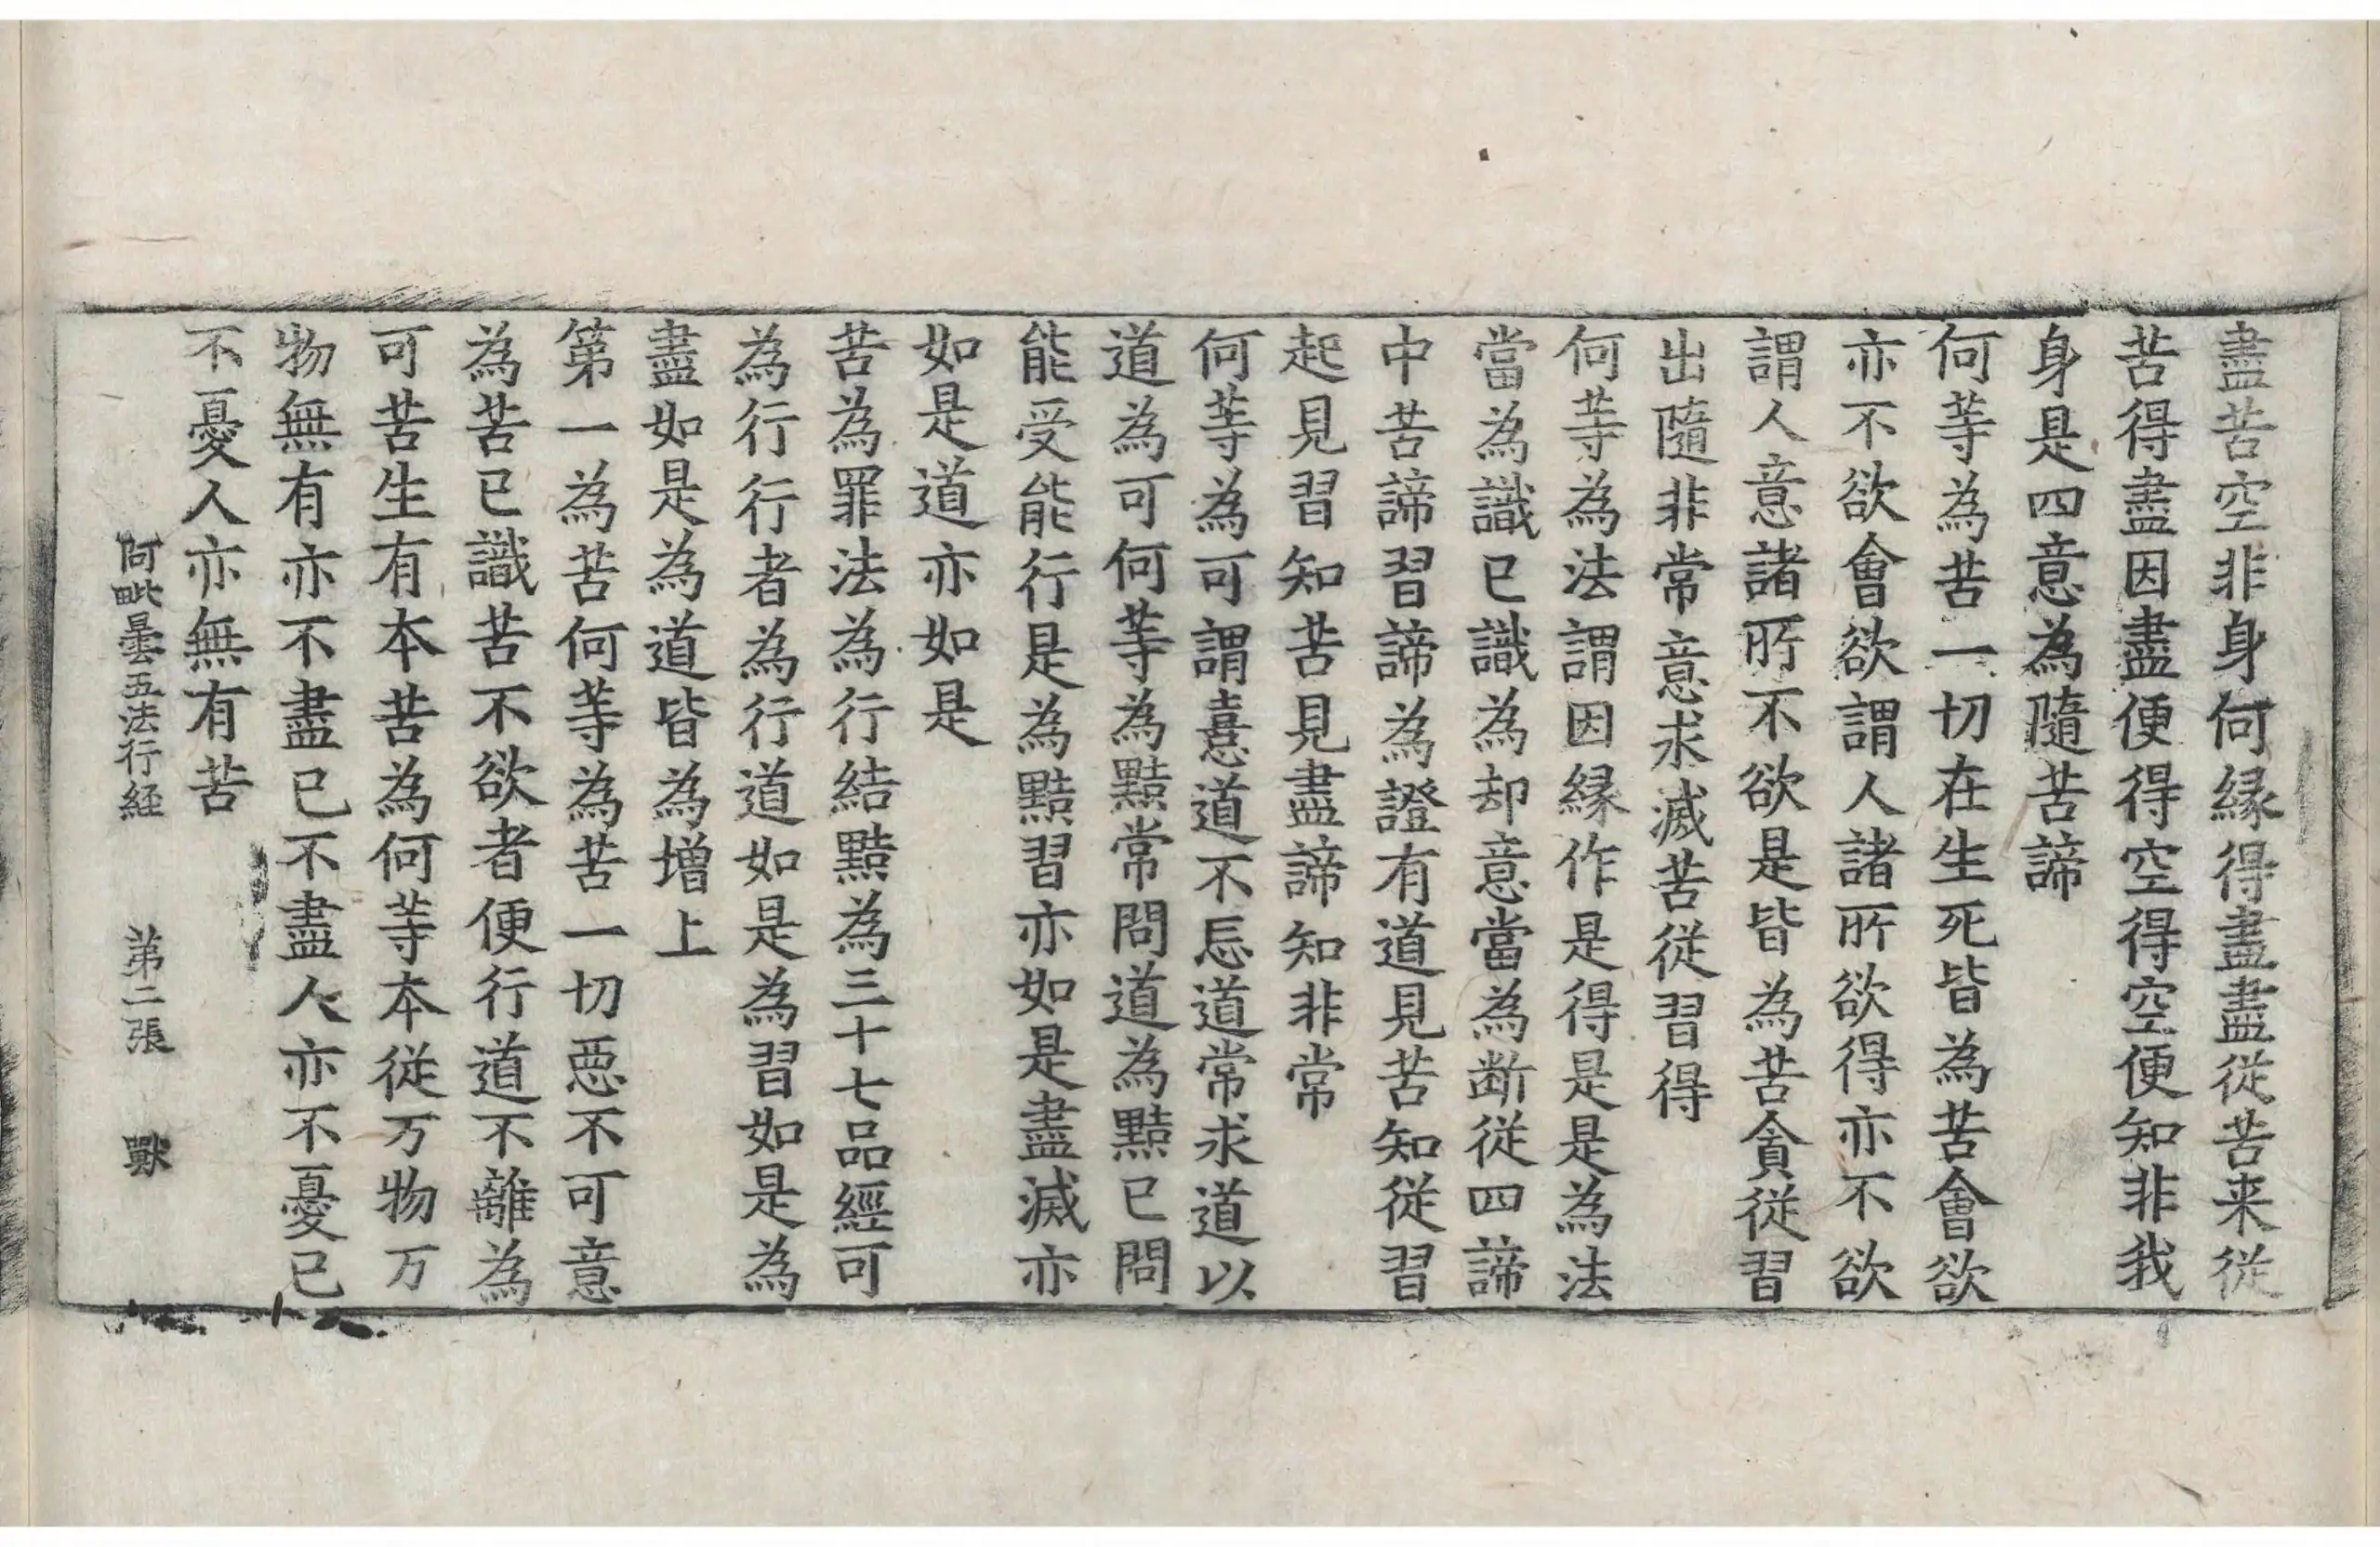 盡苦空非身何緣得盡盡從苦来從
苦得盡因盡便得空得空便知非我
身是四意為隨苦諦
何等為苦一切在生死皆為苦會欲
亦不欲會欲謂人諸所欲得亦不欲
謂人意諸所不欲是皆為苦貪從習
出隨非常意求滅苦從習得
何等為法謂因緣作是得是是為法
當為識已識為却意當為断從四諦
中苦諦習諦為證有道見苦知從習
起見習知苦見盡諦知非常
何等為可謂憙道不忘道常求道以
道為可何等為黠常問道為黠已問
能受能行是為黠習亦如是盡滅亦
如是道亦如是
苦為罪法為行結黠為三十七品經可
為行行者為行道如是為習如是為
盡如是為道皆為增上
第一為苦何等為苦一切惡不可意
為苦已識苦不欲者便行道不離為
可苦生有本苦為何等本從万物万
物無有亦不盡已不盡人亦不憂已
不憂人亦無有苦
阿毗曇五法行経 苐二張 獸